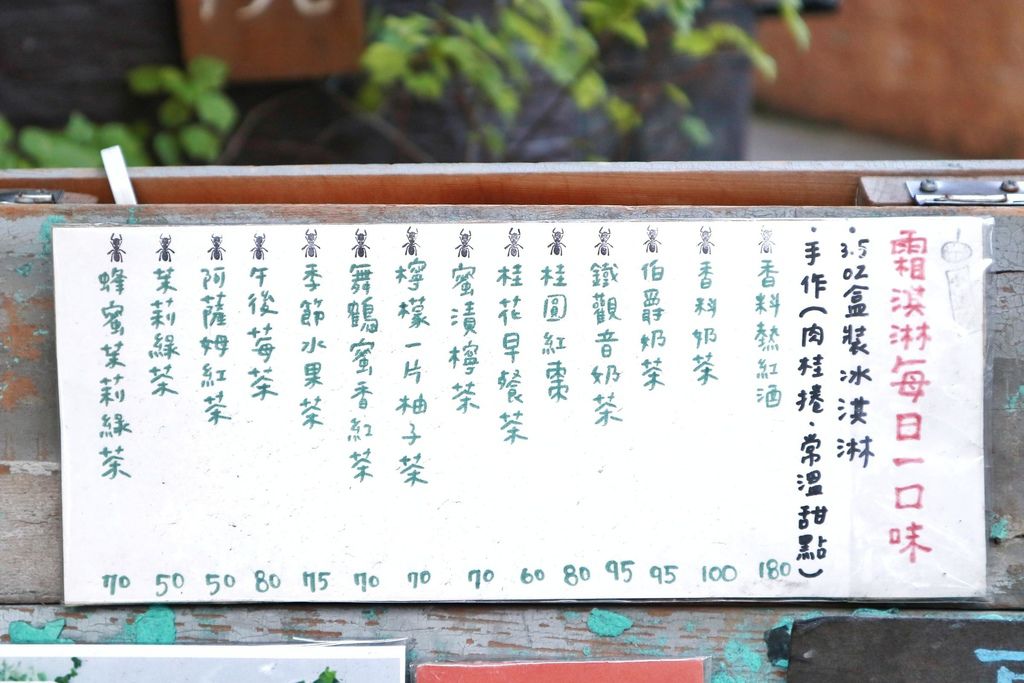 霜淇淋每日一口味
3.5OZ盒裝冰淇淋
·手作(肉桂捲·常溫甜點)
香料熱紅酒 180
香料奶茶 100
伯爵奶茶 95
鐵觀音奶茶 95
桂圓紅棗 80
桂花早餐茶 60
蜜漬檸茶 70
檸檬一片柚子茶 70
舞鶴蜜香紅茶 70
季節水果茶 75
午後莓茶 80
阿薩姆紅茶 50
茉莉綠茶 50
蜂蜜茉莉綠茶 70